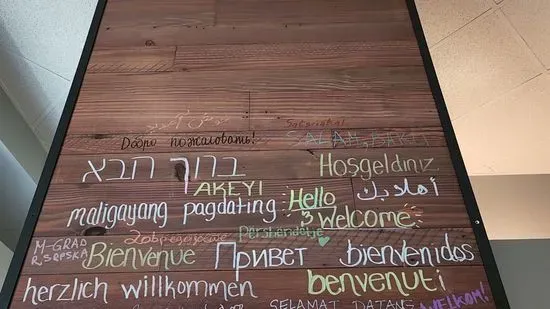 خوش آمدید
Добро пожаловать!
ברוך הבא
Hoşgeldiniz
AKEYI
أهلا بك
maligayang pagdating
Hello
& Welcome
Pershendetje
M-GRAD
R.SRPSKA
Bienvenue
Привет
bienvenidos
herzlich willkommen
benvenuti
SELAMAT DATANG
WELKOM!